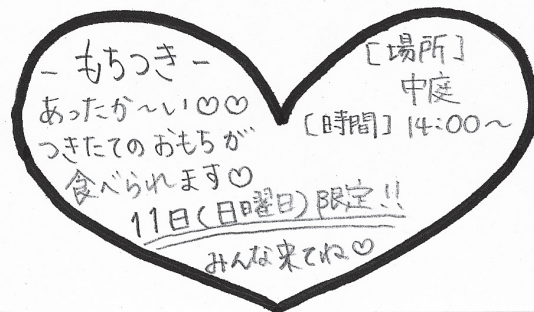 - もちつき -
あったか〜い♡♡
つきたてのおもちが
食べられます♡
[場所]
中庭
[時間] 14:00〜
11日(日曜日)限定!!
みんな来てね♡